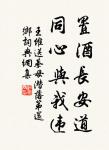 置酒長安道
同心與我違
王維送綦毋潛落第還
鄉詞典網集